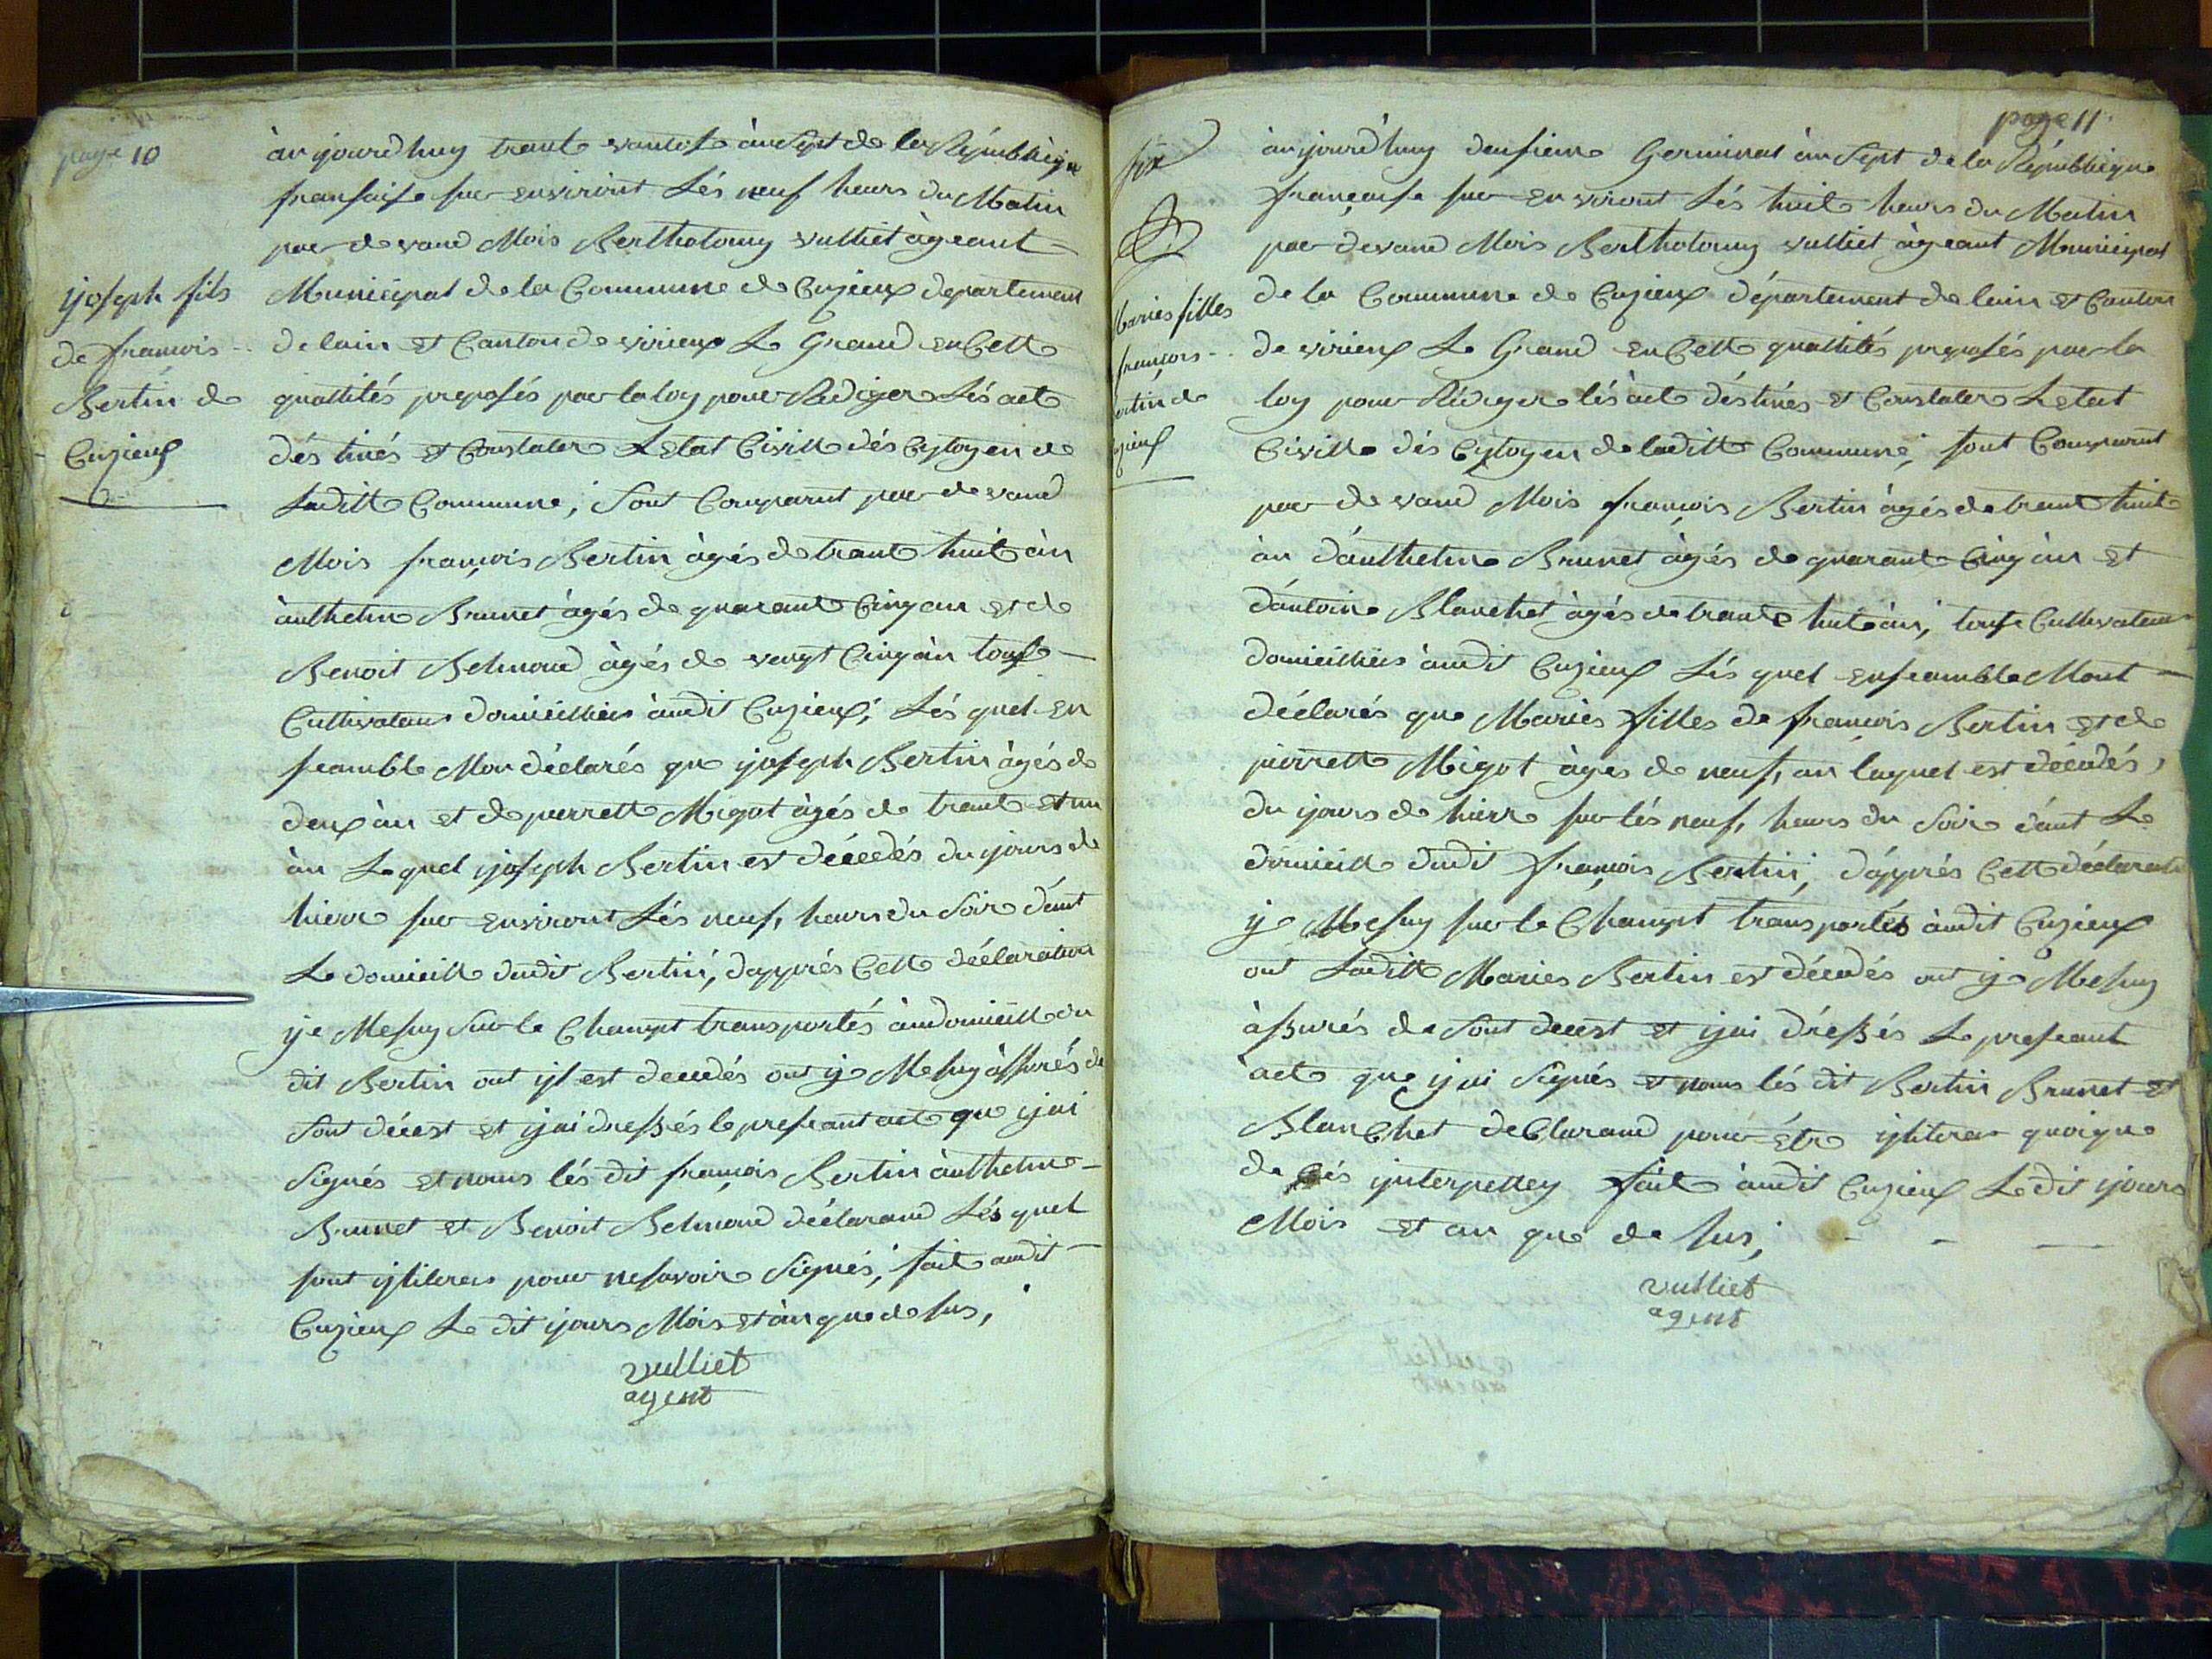 page 10
àujourdhuy trante vantose àn Sept de la Républiqu
fransaise sur environt Lés neuf heurs du Matin
par devand Mois Bertholomy vulliet àgeant
Municipal de la Commune de Cuzieux departement
delain et Canton de virieux Le Grand en Cette
quattités preposés par la loy pour Rediger Lés act
déstinés et Constater Letat Civille dés Cytoyen de
Laditte Commune, Sont Comparut par devand
Mois françois Bertin àgés de trante huit àn
ànthelme Brunet àgés de quarante Cinq an et de
Benoit Belmond àgés de vengt Cinq àn touse
Cultivateurs domicilliés àudit Cuzieux, Lés quel en
seamble Mon déclarés que ijoseph Bertin àgés de
deux àn et de pierrette Migot àgés de trante et un
àn Le quel ijoseph Bertin est décédés du ijours de
hierre sur environt Lés neuf, heurs du Soire dant
Le domicille dudit Bertin, dapprés Cette déclaration
ije Mesuy Sur le Champt transportés àudomicille du
dit Bertin out ijl est decedés out ije Mesuy àssurés de
Sont décest et ijai dressés le preseant act que ijai
Signés et nous lés dit françois Bertin ànthelme
Brunet et Benoit Belmond déclarand Lés quel
sont ijliteres pour ne savoire Signés, fait audit
Cuzieux Le dit ijours Mois et àn que de sus,
vulliet
agent
ijoseph fils
de françois
Bertin de
Cuzieux
page 11
àujourd'huy deusieme Germinal àn Sept de la République
françouse sur environt Lés huit heurs du Matin
par devand Mois Bertholomy vulliet àgeant Municipal
de la Commune de Cuzieux département de lain et Canton
de virieux Le Grand en Cette quattités preposés par la
loy pour Rédiger lés act déstinés et Constater Letat
Civille dés Cytoyen de laditte Commune, sont Comparut
par devand Mois françois Bertin àgés de trante huit
àn d'anthelme Brunet àgés de quarante Cinq àn et
dantoine Blanchet àgés de trante huit àn, touse Cultivateurs
domicilliés àudit Cuzieux Lés quel enseamble Mont
déclarés que Maries filles de françois Bertin et de
pierrette Migot àges de neuf, an laquel est décédés,
du ijours de hierre sur lés neuf, heurs du Soire dant Le
domicille dudit françois Bertin, dapprés Cette déclarati
ije Mesuy sur le Champt transportés àudit Cuzieux
out Laditte Maries Bertin est décédés out ije Mesuy
àssurés de Sont decest et ijai dressés Le preseant
àct que ijai Signés et nous lés dit Bertin Brunet et
Blanchet deClarand pour être ijliteres quoique
de Cés ijnterpelley fait àudit Cuzieux Ledit ijours
Mois et an que de sus,
vulliet
agent
six
Maries filles
françois
Bertin de
Cuzieux